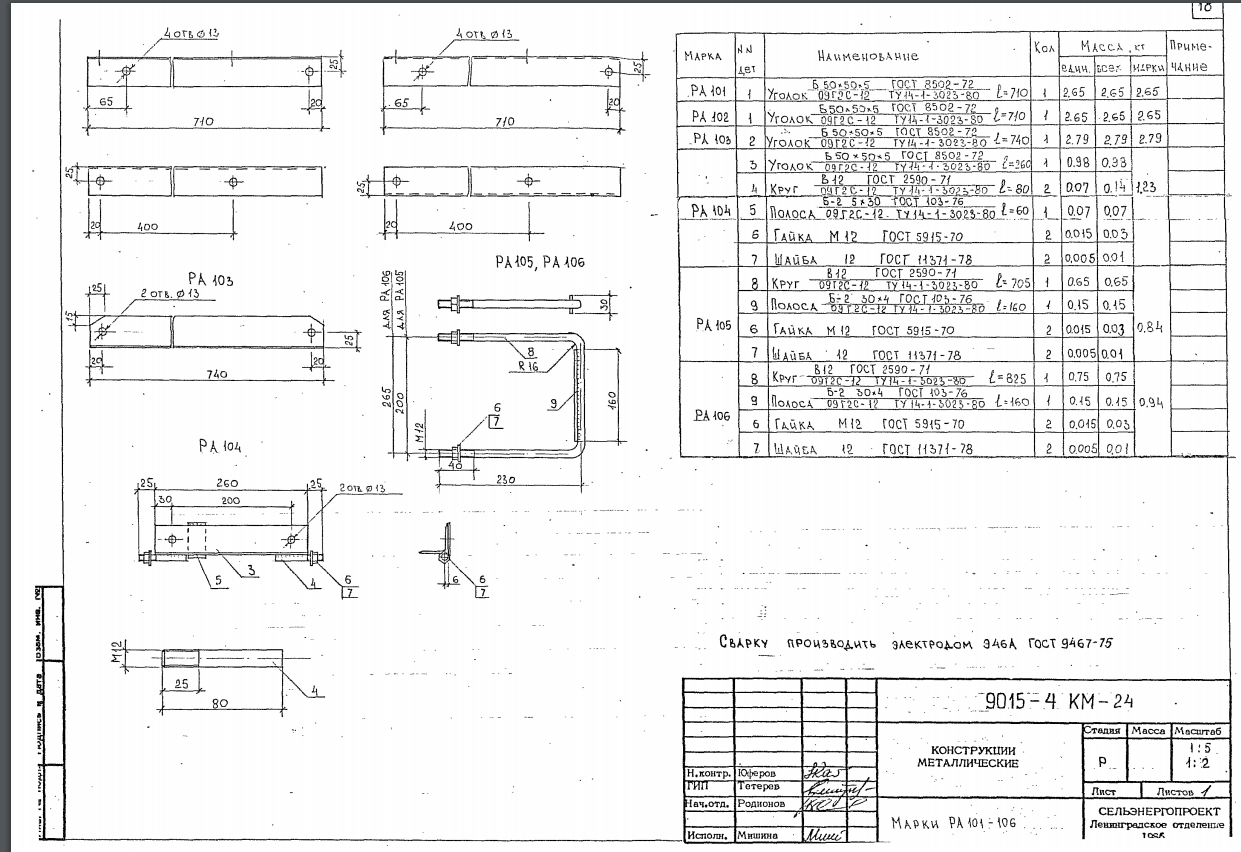 18
4 отв. ø13
25
65
20
710
4 отв. ø13
25
65
20
710
25
20
400
25
20
400
РА 103
25
2 отв. ø13
15
25
20
20
740
РА105, РА106
для РА106
для РА105
30
8
R16
265
200
9
160
6
7
М12
40
230
РА 104
25
260
25
30
200
2 отв. ø13
5
3
4
6
7
6
6
7
М12
25
80
4
Марка
NN дет
Наименование
Кол
Масса, кг
Приме-
чание
един.
всех
марки
РА 101 1 Уголок Б 50×50×5 ГОСТ 8502-72 / 09Г2С-12 ТУ14-1-3023-80 ℓ=710 1 2,65 2,65 2,65
РА 102 1 Уголок Б 50×50×5 ГОСТ 8502-72 / 09Г2С-12 ТУ14-1-3023-80 ℓ=710 1 2.65 2.65 2.65
РА 103 2 Уголок Б 50×50×5 ГОСТ 8502-72 / 09Г2С-12 ТУ14-1-3023-80 ℓ=740 1 2.79 2,79 2.79
РА 104 3 Уголок Б 50×50×5 ГОСТ 8502-72 / 09Г2С-12 ТУ14-1-3023-80 ℓ=260 1 0.98 0,98 1,23
4 Круг В 12 ГОСТ 2590-71 / 09Г2С-12 ТУ14-1-3023-80 ℓ=80 2 0.07 0.14
5 Полоса Б-2 5×30 ГОСТ 103-76 / 09Г2С-12 ТУ14-1-3023-80 ℓ=60 1 0.07 0,07
6 Гайка М 12 ГОСТ 5915-70 2 0,015 0.03
7 Шайба 12 ГОСТ 11371-78 2 0,005 0,01
РА 105 8 Круг В12 ГОСТ 2590-71 / 09Г2С-12 ТУ14-1-3023-80 ℓ=705 1 0.65 0,65 0.84
9 Полоса Б-2 30×4 ГОСТ 103-76 / 09Г2С-12 ТУ14-1-3023-80 ℓ=160 1 0.15 0.15
6 Гайка М 12 ГОСТ 5915-70 2 0.015 0,03
7 Шайба 12 ГОСТ 11371-78 2 0.005 0,01
РА 106 8 Круг В12 ГОСТ 2590-71 / 09Г2С-12 ТУ14-1-3023-80 ℓ=825 1 0.75 0,75 0,94
9 Полоса Б-2 30×4 ГОСТ 103-76 / 09Г2С-12 ТУ14-1-3023-80 ℓ=160 1 0.15 0.15
6 Гайка М12 ГОСТ 5915-70 2 0,015 0,03
7 Шайба 12 ГОСТ 11371-78 2 0.005 0,01
Сварку производить электродом Э46А ГОСТ 9467-75
9015-4 КМ-24
КОНСТРУКЦИИ
МЕТАЛЛИЧЕСКИЕ
Стадия Масса Масштаб
Р 1:5
1:2
Лист Листов 1
Н.контр. Юферов
ГИП Тетерев
Нач.отд. Родионов
Исполн. Мишина
Марки РА 101-106
СЕЛЬЭНЕРГОПРОЕКТ
Ленинградское отделение
1986